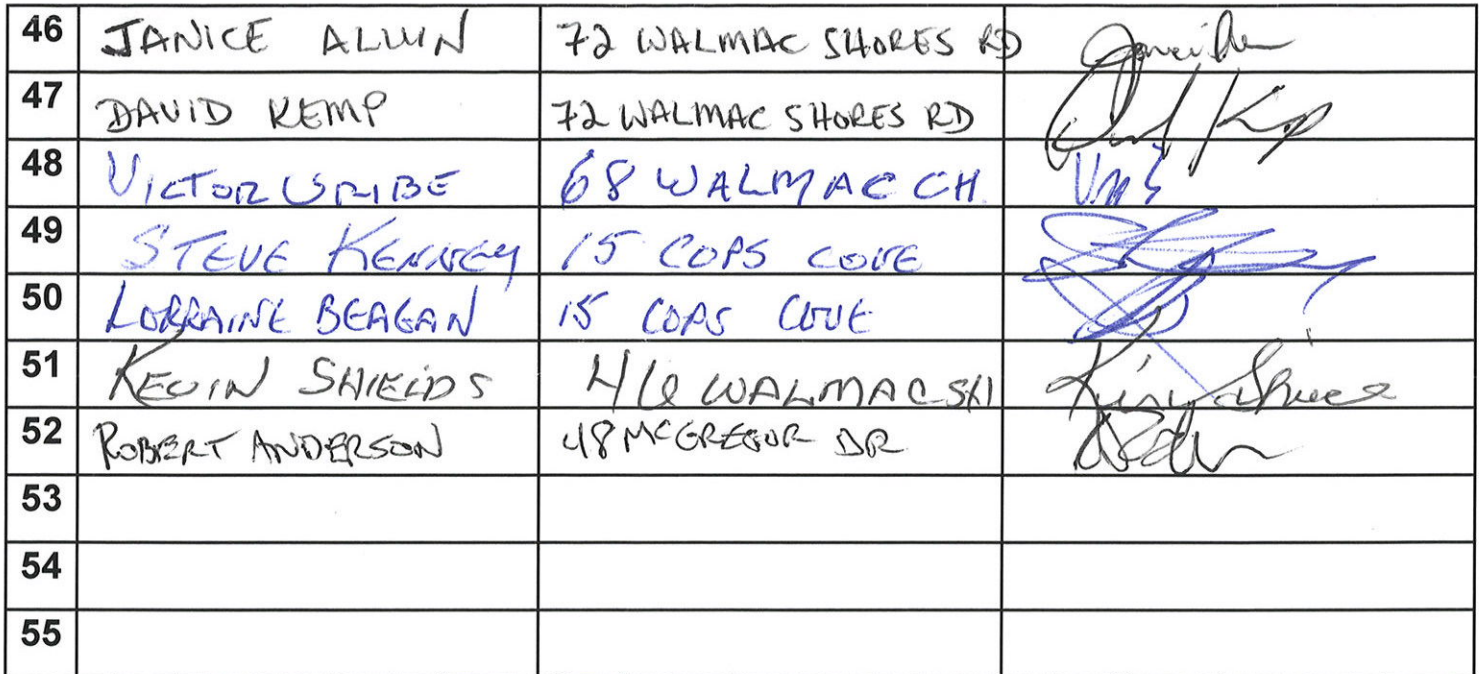 46 JANICE ALLVIN 72 WALMAC SHORES RD
47 DAVID KEMP 72 WALMAC SHORES RD
48 VICTOR URIBE 68 WALMAC CH.
49 STEVE KENNEY 15 COPS COVE
50 LORRAINE BEAGAN 15 COPS COVE
51 KEVIN SHIELDS 46 WALMAC SH
52 ROBERT ANDERSON 48 MCGREGOR DR
53
54
55